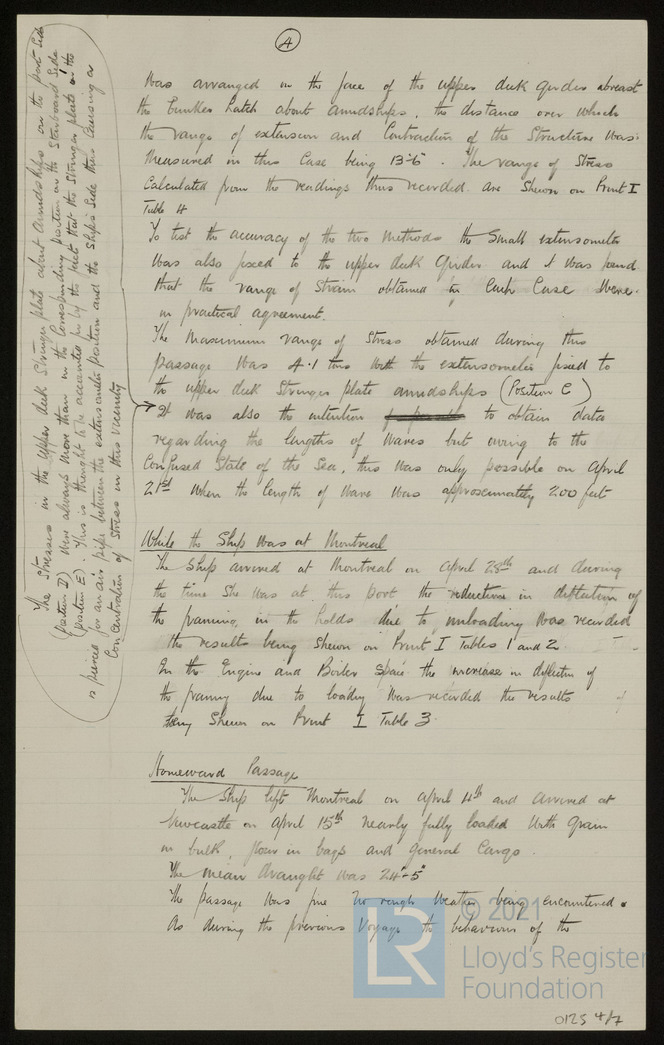 A
Was arranged on the face of the upper deck Girder abreast
the bunker hatch about amidships, the distance over which
the range of extension and Contraction of the Structure was
measured in this Case being 13'-6". The range of Stress
Calculated from the readings thus recorded. are Shewn on Print I
Table 4
To test the accuracy of the two Methods the Small extensometer
was also fixed to the upper deck Girder and it was found
that the range of Strain obtained in Each Case were
in practical agreement.
The Maximum range of Stress obtained during this
passage was 4.1 tons with the extensometer fixed to
the upper deck Stringer plate amidships (Position C)
It was also the intention to obtain data
regarding the lengths of Waves but owing to the
Confused State of the Sea, this was only possible on April
21st when the length of wave was approximately 200 feet
The Stresses in the upper deck Stringer plate about Amidships on the port Side
(position D) were always more than in the Corresponding position on the Starboard Side
(position E). This is thought to be accounted for by the fact that the Stringer plate on the
is pierced for an air pipe between the extensometer position and the Ship's Side thus Causing a
Concentration of Stress in this vicinity
While the Ship was at Montreal
The Ship arrived at Montreal on April 28th and during
the time She was at this port the reduction in deflection of
the framing, in the holds due to unloading was recorded
the results being Shewn on Print I Tables 1 and 2.
In the Engine and Boiler Space the increase in deflection of
the framing due to loading was recorded the results
being Shewn on Print I Table 3.
Homeward Passage
The Ship left Montreal on April 4th and arrived at
Newcastle on April 15th nearly fully loaded with Grain
in bulk, flour in bags and General Cargo.
The mean draught was 24'-5"
The passage was fine no rough weather being encountered.
As during the previous Voyage the behaviour of the
© 2021
LR
Lloyd's Register
Foundation
0125 4/7